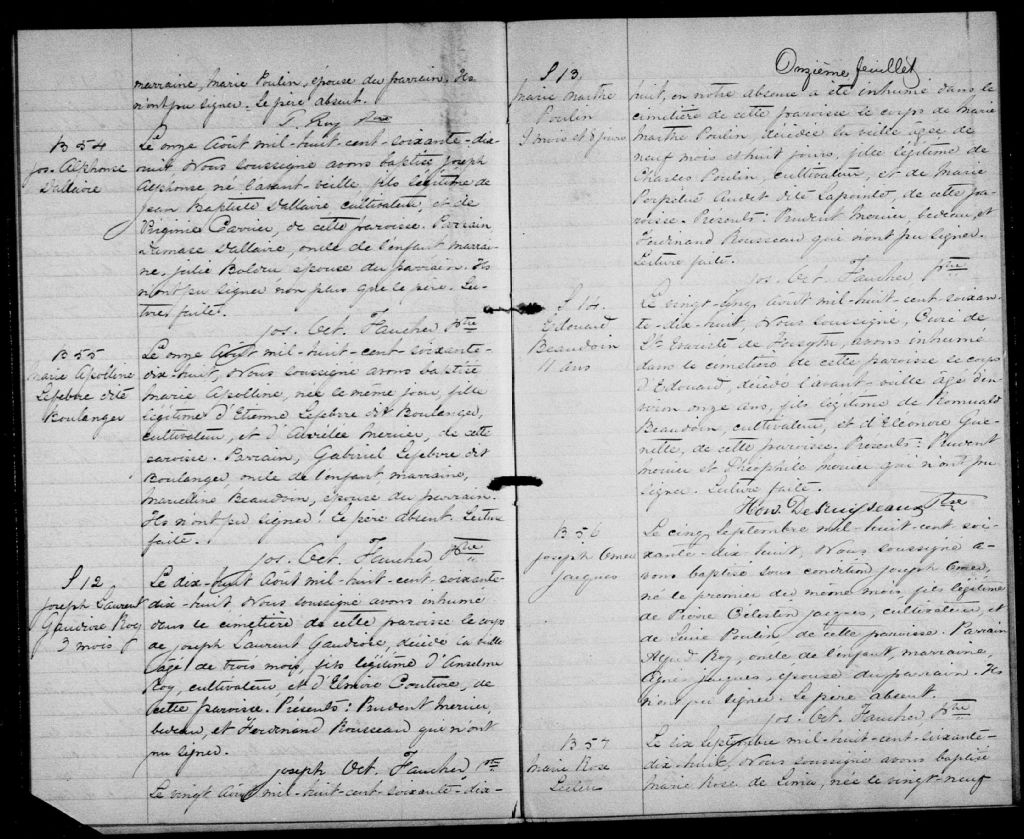 marraine, marie Poulin, épouse du parrain. Ils
n'ont pu signer. Le père absent.
Roy Ptre
B 54
Jos. Alphonse
Dallaire
Le onze Août mil-huit-cent-soixante-dix-
huit, Nous soussigné avons baptisé Joseph
Alphonse né l'avant-veille, fils légitime de
Jean Baptiste Dallaire cultivateur, et de
Régine Carrier, de cette paroisse. Parrain
Damase Dallaire, oncle de l'enfant marai-
ne, julie épouse du parrain. Ils
n'ont pu signer non plus que le père. Lec-
ture faite.
Jos. Oct. Faucher Ptre
B 55
marie Apolline
Lefebvre dité
Boulanger
Le onze Août mil-huit-cent-soixante-
dix-huit, Nous soussigné avons baptisé
marie Apolline, née le même jour, fille
légitime d'Etienne Lefebvre dit Boulanger,
cultivateur, et d'Aurélie mercier, de cette
paroisse. Parrain, Gabriel Lefebvre dit
Boulanger, oncle de l'enfant, marraine,
marcelline Beaudoin, épouse du parrain.
Ils n'ont pu signer. Le père absent. Lecture
faite.
Jos. Oct. Faucher Ptre
S 12
Joseph Laurent
Gaudiose Roy
3 mois
Le dix-huit Août mil-huit-cent-soixante-
dix-huit, Nous soussigné avons inhumé
dans le cimetière de cette paroisse le corps
de joseph Laurent Gaudiose, décédé la veille
âgé de trois mois, fils légitime d'Anselme
Roy, cultivateur, et d'Elmire Couture, de
cette paroisse. Présents: Prudent mercier,
bedeau, et Ferdinand Rousseau qui n'ont
pu signer.
Joseph Oct. Faucher, ptre
Le vingt Août mil-huit-cent-soixante-dix-
Onzième feuillet
S 13
marie marthe
Poulin
9 mois et 8 jours
huit, en notre absence a été inhumé dans le
cimetière de cette paroisse le corps de marie
marthe Poulin, décédée la veille âgée de
neuf mois et huit jours, fille légitime de
Charles Poulin, cultivateur, et de Marie
Perpétue Audet dité Lapointe, de cette pa-
roisse. Présents: Prudent mercier, bedeau, et
Ferdinand Rousseau qui n'ont pu signer.
Lecture faite.
Jos. Oct. Faucher Ptre
S 14
Edouard
Beaudoin
11 ans
Le vingt-cinq août mil-huit-cent-soixan-
te-dix-huit, Nous soussigné, Curé de
St Evariste de Forsyth, avons inhumé
dans le cimetière de cette paroisse le corps
d'Edouard, décédé l'avant-veille âgé d'en-
viron onze ans, fils légitime de Romuald
Beaudoin, cultivateur, et d'Eléonore Gue-
nette, de cette paroisse. Présents: Prudent
mercier et Théophile mercier qui n'ont pu
signer. Lecture faite.
Hon. DesRuisseaux Ptre
B 56
Joseph Omer
Jacques
Le cinq Septembre mil-huit-cent-soi-
xante-dix-huit, Nous soussigné a-
vons baptisé sous condition Joseph Omer,
né le premier du même mois, fils légitime
de Pierre Célestin Jacques, cultivateur, et
de Poulin de cette paroisse. Parrain
Roy, oncle de l'enfant, marraine,
jacques, épouse du parrain. Ils
n'ont pu signer. Le père absent.
Jos. Oct. Faucher Ptre
B 57
Marie Rose
Leclerc
Le dix Septembre mil-huit-cent-soixante-
dix-huit, Nous soussigné avons baptisé
Marie Rose de Lima, née le vingt-neuf